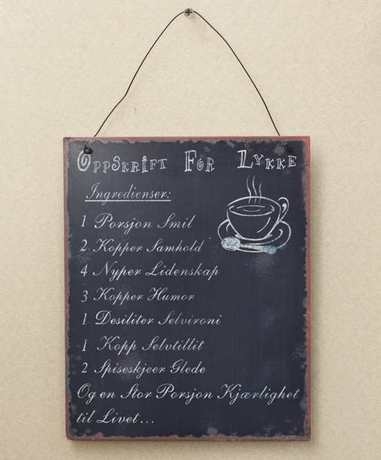 Oppskrift For Lykke
Ingredienser:
1 Porsjon Smil
2 Kopper Samhold
4 Nyper Lidenskap
3 Kopper Humor
1 Desiliter Selvironi
1 Kopp Selvtillit
2 Spiseskjeer Glede
Og en Stor Porsjon Kjærlighet
til Livet...